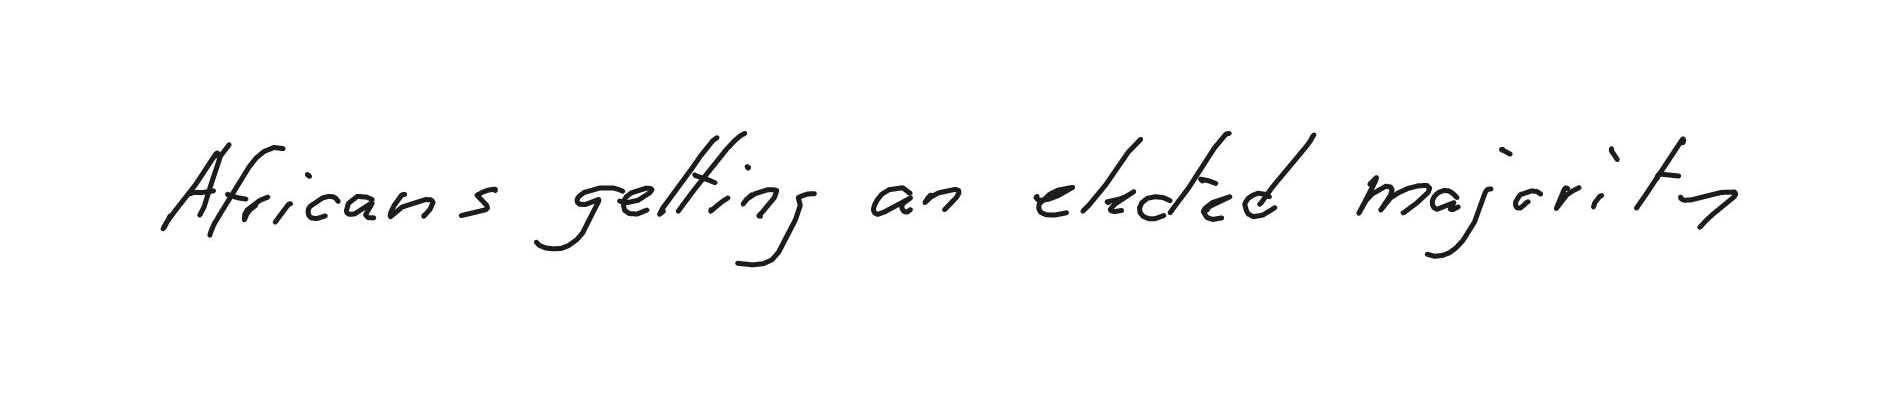 Africans getting an elected majority